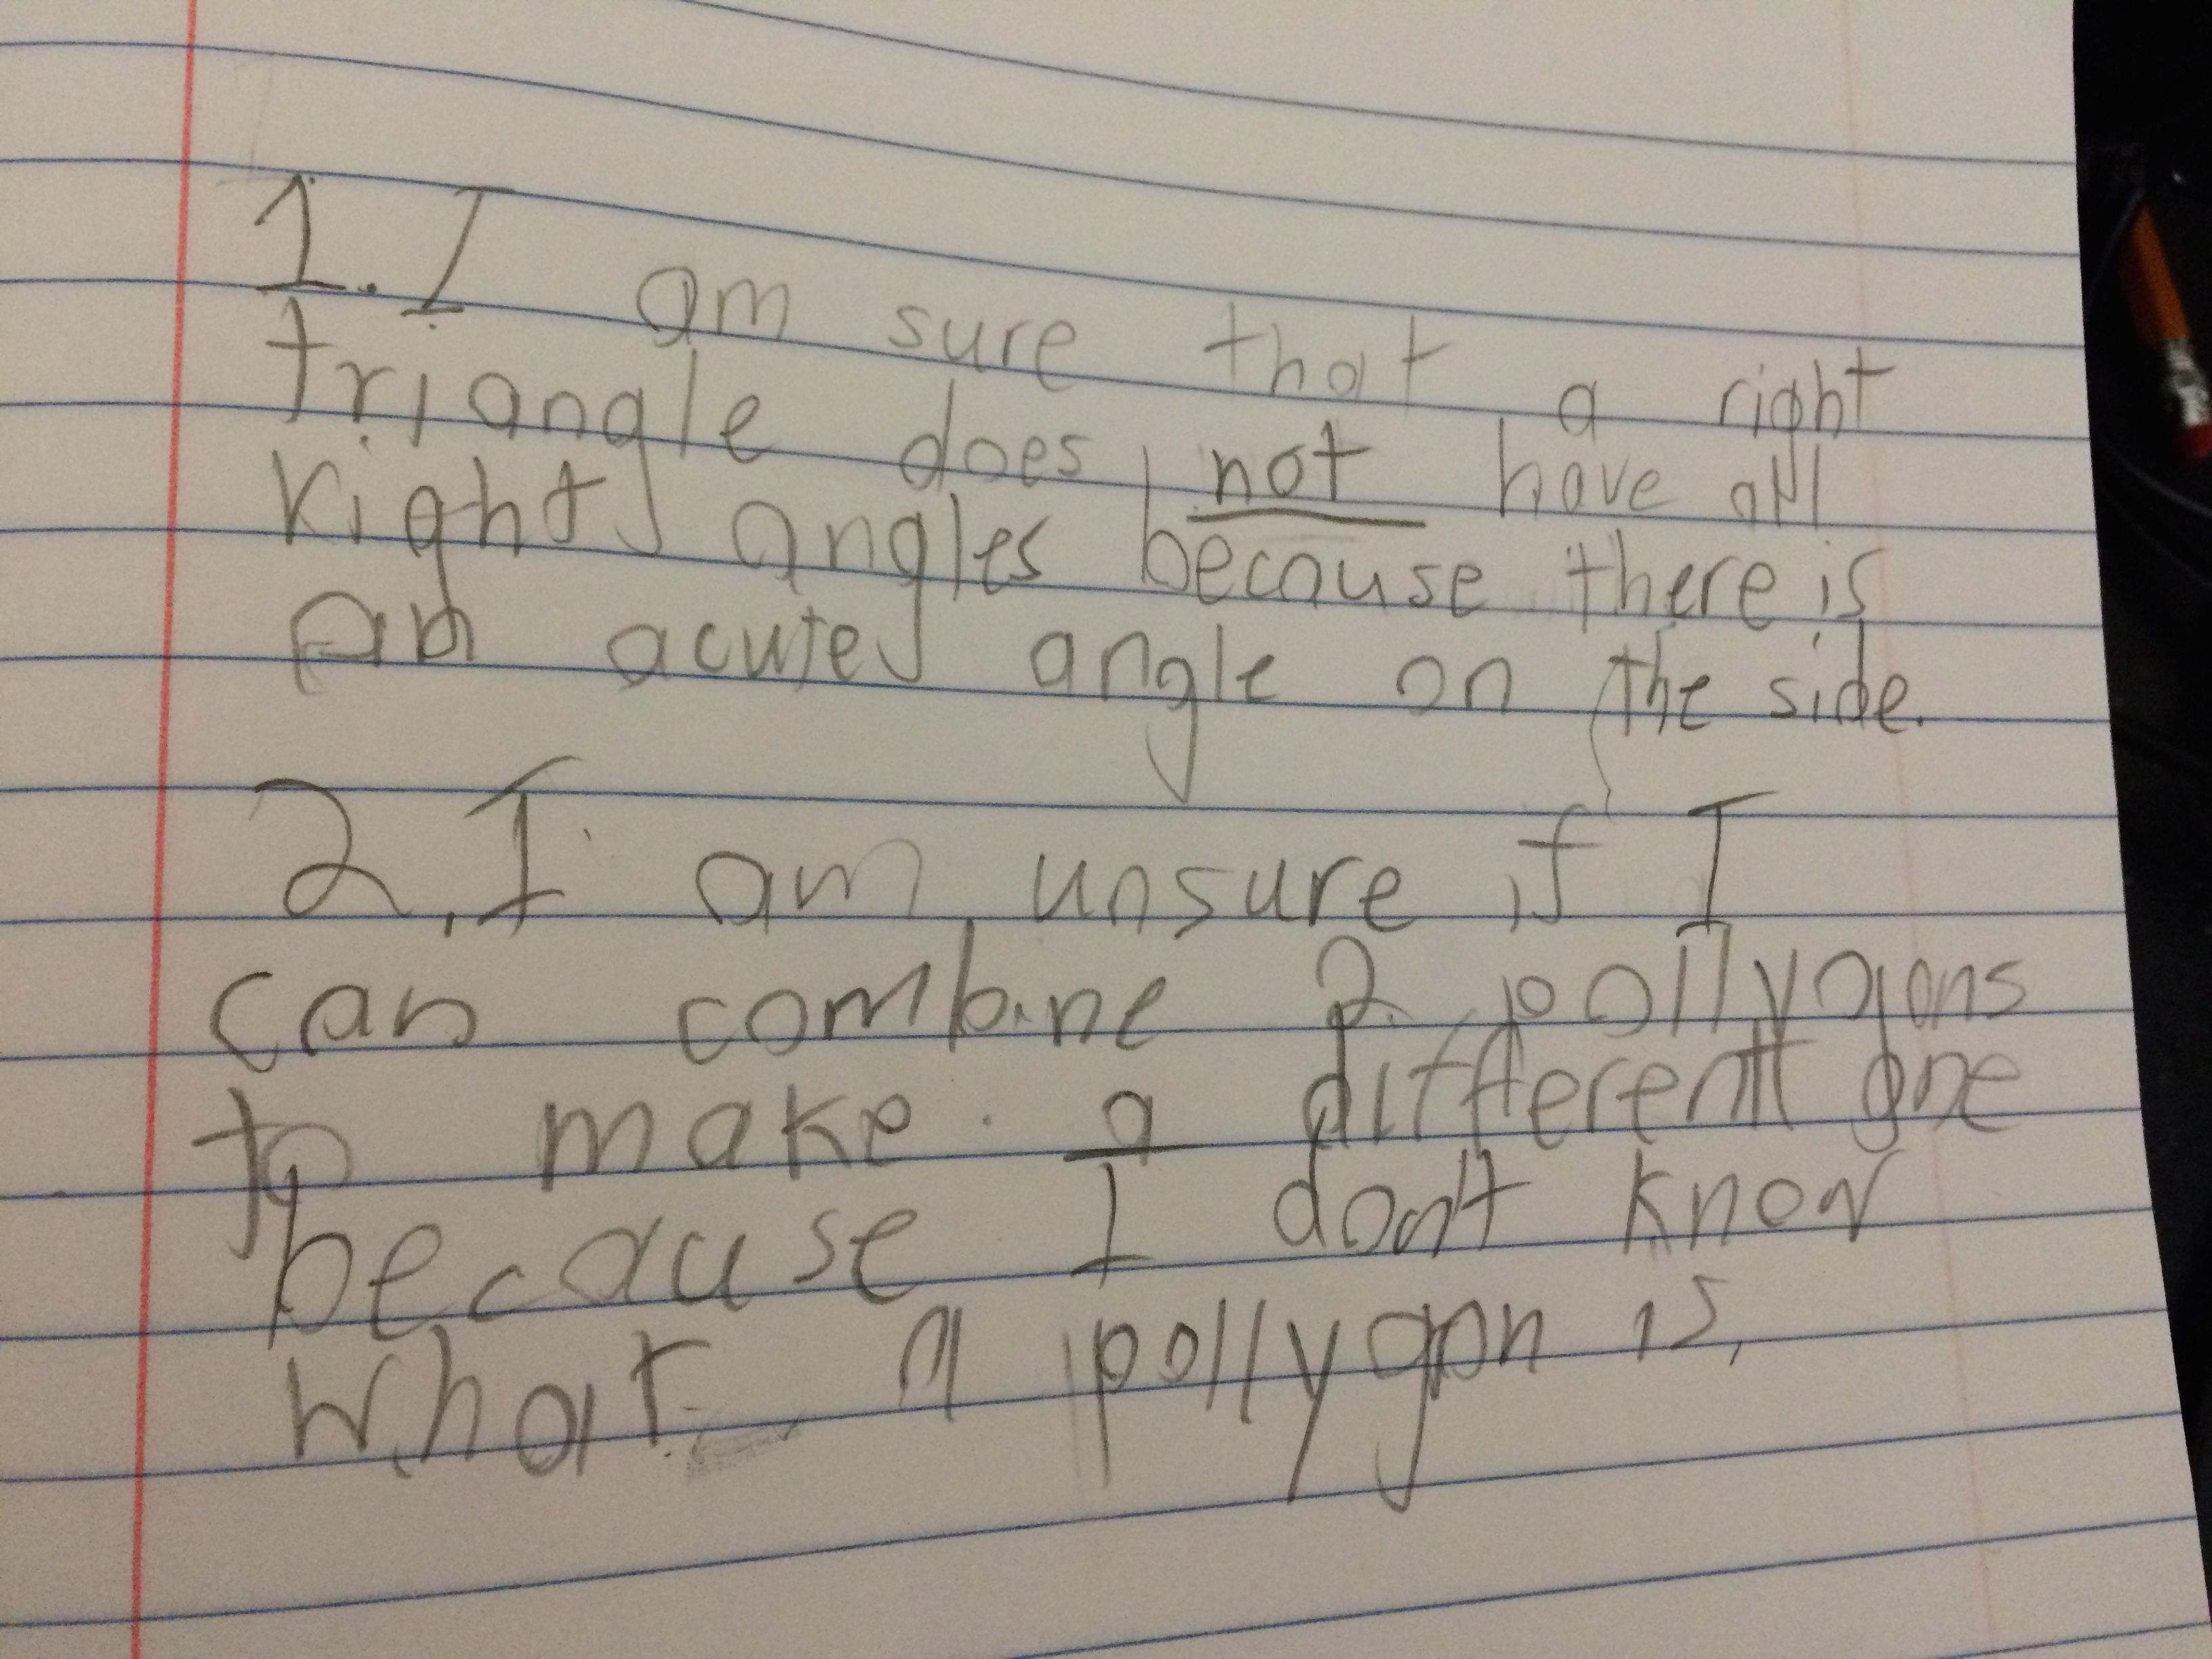 1. I am sure that a right
triangle does not have all
right angles because there is
an acute angle on the side.
2. I am unsure if I
can combine 2 pollygons
to make a different one
because I don't know
what a pollygon is.